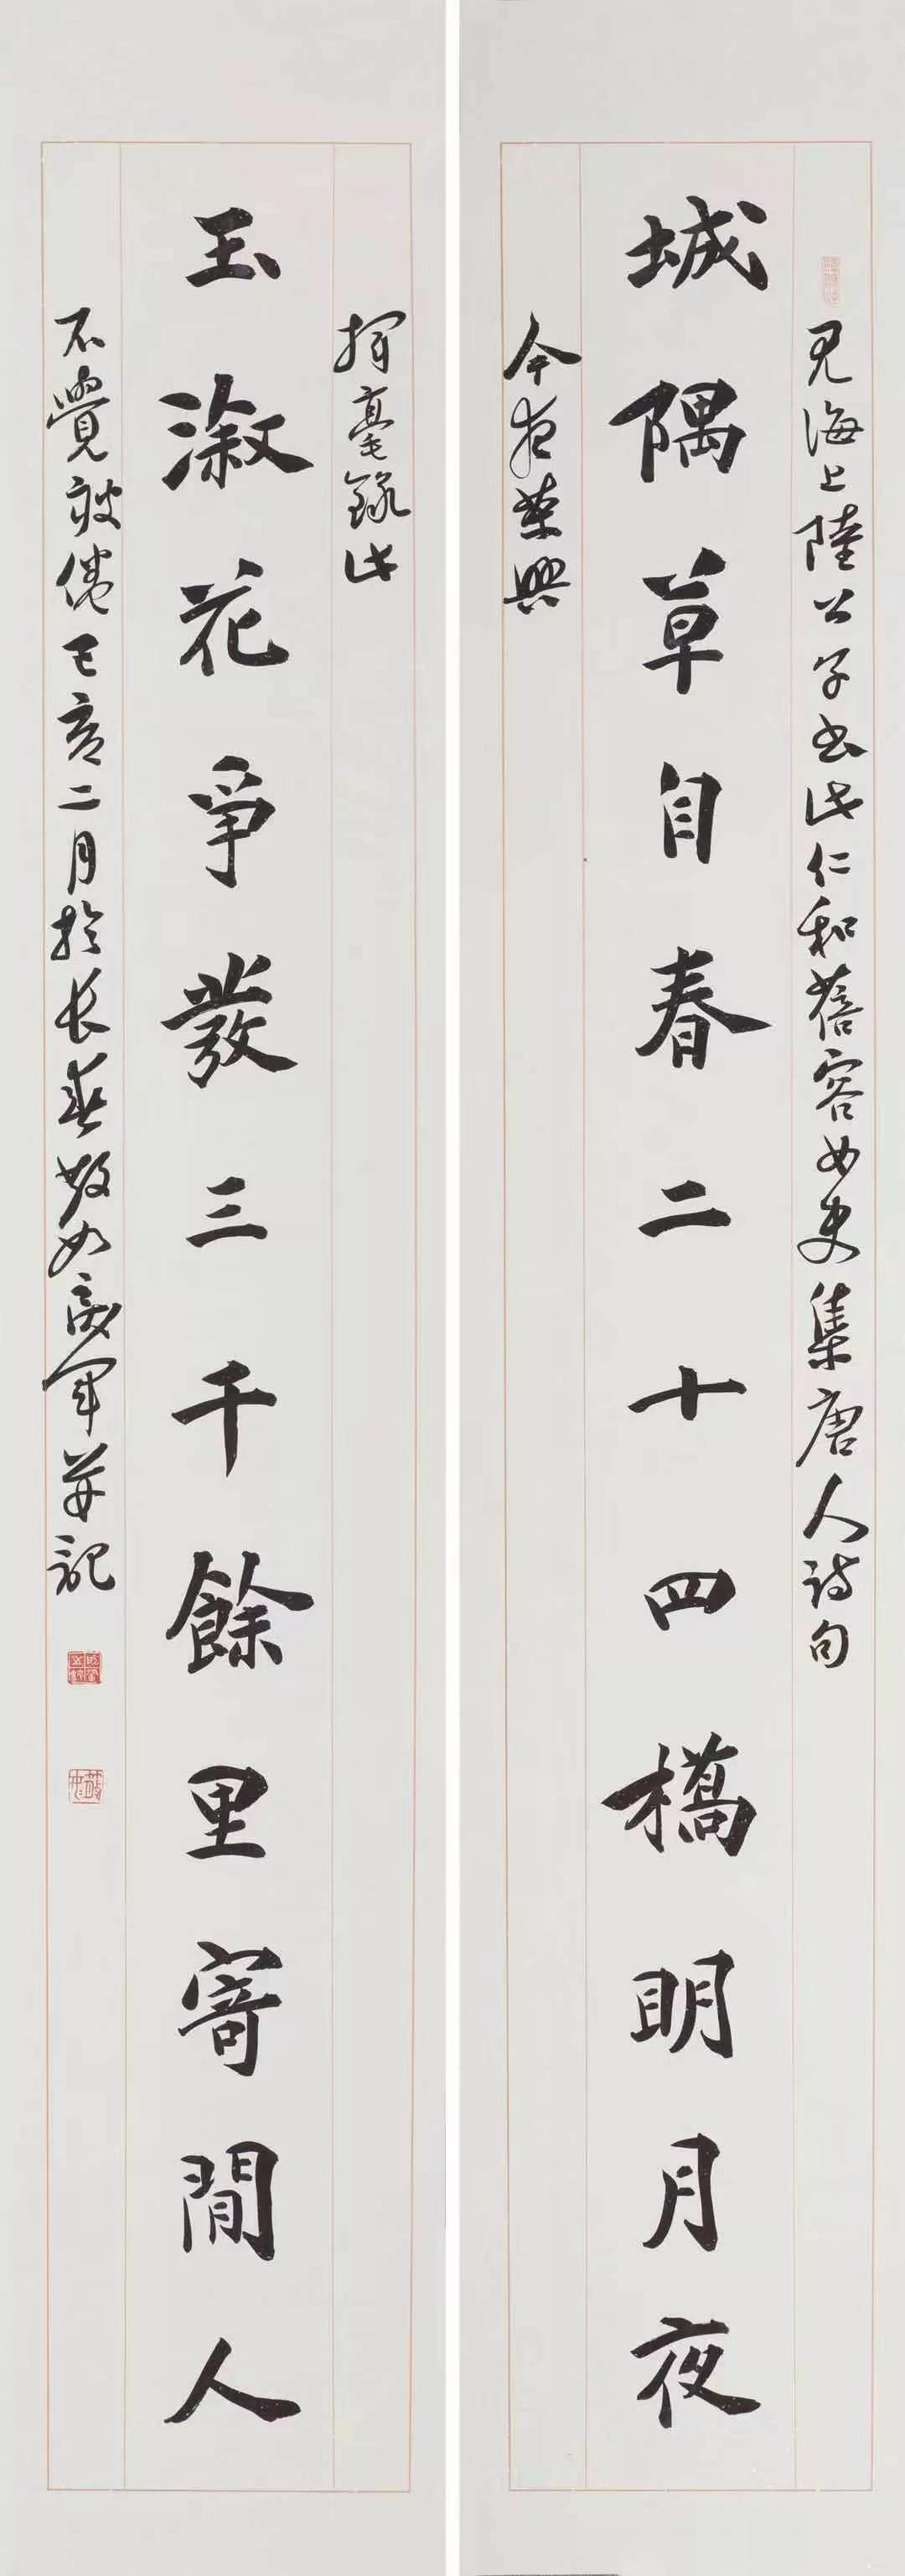 見海上陸公子書此仁和蓓容女史集唐人詩句
城隅草自春二十四橋明月夜
今夜乘興
揮毫錄此
玉漵花爭發三千餘里寄閒人
不覺疲倦己亥二月於長春軍并記